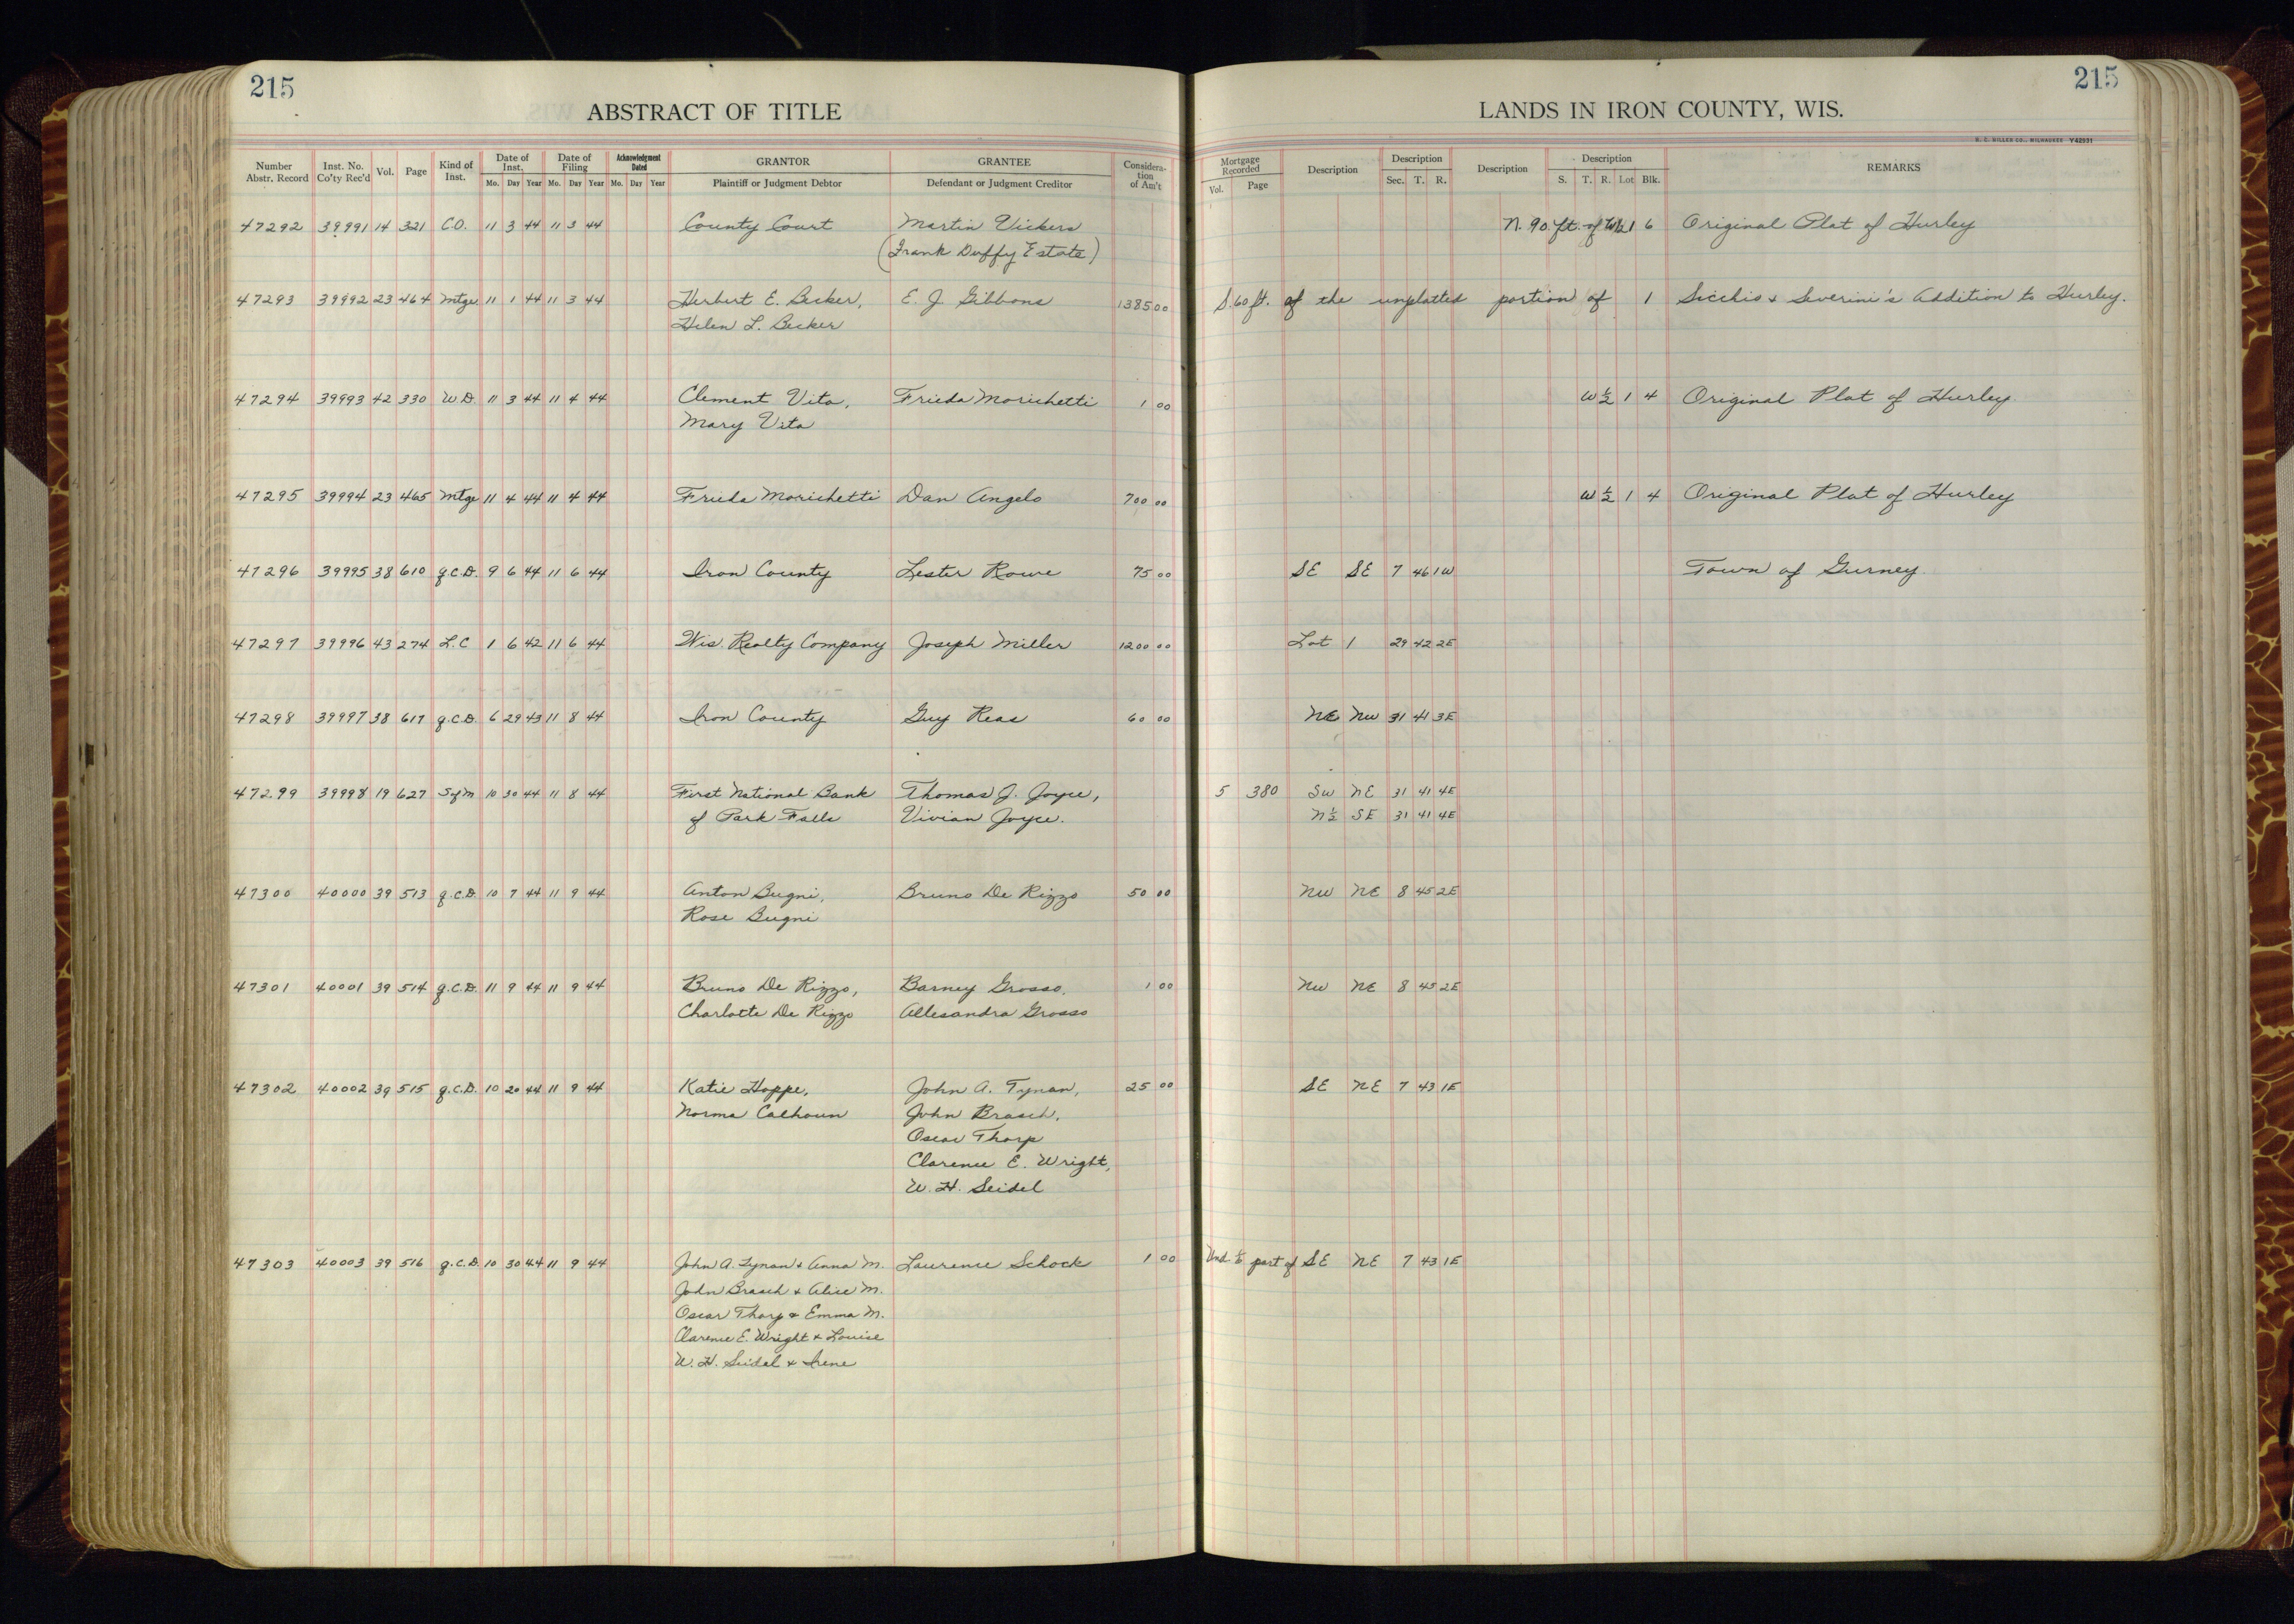 215
ABSTRACT OF TITLE
Number Abstr. Record Inst. No. Co'ty Rec'd Vol. Page Kind of Inst. Date of Inst. Mo. Day Year Date of Filing Mo. Day Year Acknowledgment Dated Mo. Day Year GRANTOR Plaintiff or Judgment Debtor GRANTEE Defendant or Judgment Creditor Consideration of Am't
215
LANDS IN IRON COUNTY, WIS.
H. C. MILLER CO., MILWAUKEE Y42931
Mortgage Recorded Vol. Page Description Description Sec. T. R. Description Description S. T. R. Lot Blk. REMARKS
47292 39991 14 321 C.O. 11 3 44 11 3 44 County Court Martin Vickers N. 90 ft. of W½ 1 6 Original Plat of Hurley
(Frank Duffy Estate)
47293 39992 23 464 Mtge 11 1 44 11 3 44 Herbert E. Becker, E. J. Gibbons 1385 00 S. 60 ft. of the unplatted portion of 1 Sicchio & Severini's Addition to Hurley.
Helen L. Becker
47294 39993 42 330 W.D. 11 3 44 11 4 44 Clement Vita, Frieda Morichetti 1 00 W ½ 1 4 Original Plat of Hurley.
Mary Vita
47295 39994 23 465 Mtge 11 4 44 11 4 44 Frieda Morichetti Dan Angelo 700 00 W ½ 1 4 Original Plat of Hurley
47296 39995 38 610 q.C.D. 9 6 44 11 6 44 Iron County Lester Rowe 75 00 SE SE 7 46 1W Town of Gurney.
47297 39996 43 274 L.C 1 6 42 11 6 44 Wis. Realty Company Joseph Miller 1200 00 Lot 1 29 42 2E
47298 39997 38 611 q.C.D. 6 29 43 11 8 44 Iron County Guy Reas 60 00 NE NW 31 41 3E
47299 39998 19 627 S of M 10 30 44 11 8 44 First National Bank Thomas J. Joyce, 5 380 SW NE 31 41 4E
of Park Falls Vivian Joyce. N½ SE 31 41 4E
47300 40000 39 513 q.C.D. 10 7 44 11 9 44 Anton Bugni, Bruno De Rizzo 50 00 NW NE 8 45 2E
Rose Bugni
47301 40001 39 514 q.C.D. 11 9 44 11 9 44 Bruno De Rizzo, Barney Grosso, 1 00 NW NE 8 45 2E
Charlotte De Rizzo Allesandra Grosso
47302 40002 39 515 q.C.D. 10 20 44 11 9 44 Katie Hoppe, John A. Tynan, 25 00 SE NE 7 43 1E
Norma Calhoun John Brasch,
Oscar Thorp
Clarence E. Wright,
W. H. Seidel
47303 40003 39 516 q.C.D. 10 30 44 11 9 44 John A. Tynan & Anna M. Laurence Schock 1 00 Und. 1/6 part of SE NE 7 43 1E
John Brasch & Alice M.
Oscar Thorp & Emma M.
Clarence E. Wright & Louise
W. H. Seidel & Irene